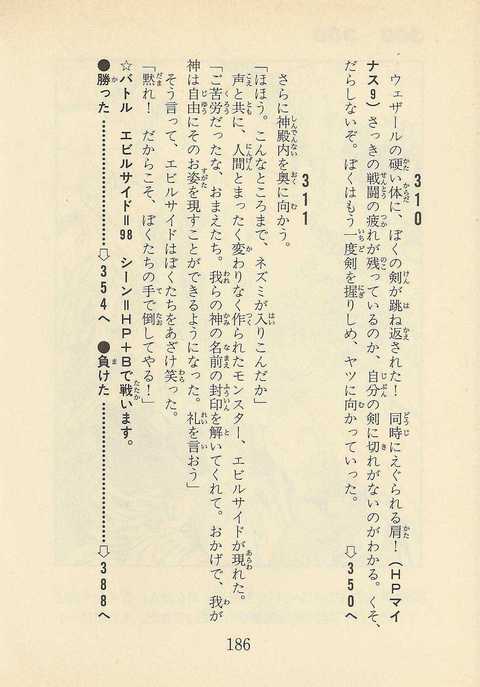 310
ウェザールの硬い体に、ぼくの剣が跳ね返された！　同時にえぐられる肩！（HPマイ
ナス9）さっきの戦闘の疲れが残っているのか、自分の剣に切れがないのがわかる。くそ、
だらしないぞ。ぼくはもう一度剣を握りしめ、ヤツに向かっていった。
⇨350へ
311
さらに神殿内を奥に向かう。
「ほほう。こんなところまで、ネズミが入りこんだか」
声と共に、人間とまったく変わりなく作られたモンスター、エビルサイドが現れた。
「ご苦労だったな、おまえたち。我らの神の名前の封印を解いてくれて。おかげで、我が
神は自由にそのお姿を現すことができるようになった。礼を言おう」
そう言って、エビルサイドはぼくたちをあざけ笑った。
「黙れ！　だからこそ、ぼくたちの手で倒してやる！」
☆バトル　エビルサイド＝98　シーン＝HP＋Bで戦います。
●勝った…………………⇨354へ　●負けた…………………⇨388へ
186